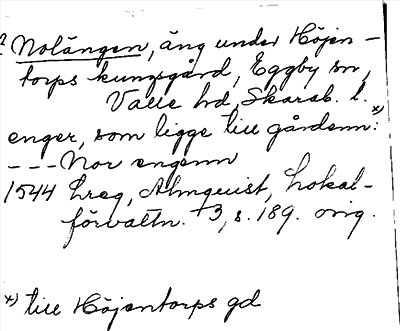 Nolängen, äng under Höjen-
torps kungsgård, Eggby sn,
Valle hd, Skarab. l.
enger, som ligge till gårdenn: *)
--- Nor engenn
1544 Lreg, Almquist, Lokal-
förvaltn. 3, s. 189. orig.
*) till Höjentorps gd